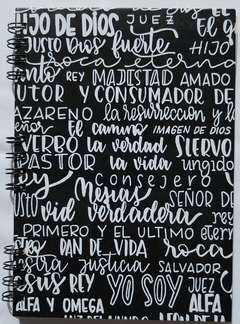 HIJO DE DIOS JUEZ
JUSTO Dios fuerte HIJO
roca eterna
REY MAJESTAD AMADO
AUTOR Y CONSUMADOR DE
NAZARENO la resurreccion y la
El camino IMAGEN DE DIOS
VERBO la verdad SIERVO
PASTOR la vida ungido
Consejero
Mesias SEÑOR DE
JUSTO vid verdadera
PRIMERO Y EL ULTIMO
PAN DE VIDA roca
justicia SALVADOR
JESUS REY YO SOY JUEZ
ALFA Y OMEGA ALFA